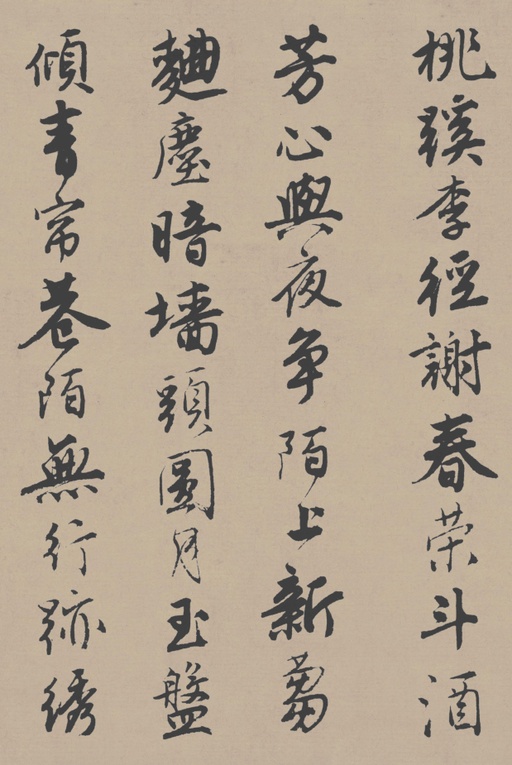 桃蹊李徑謝春荣斗酒
芳心與夜争陌上新芻
麯塵暗墙頭圓月玉盤
傾青帘巷陌無行跡綉